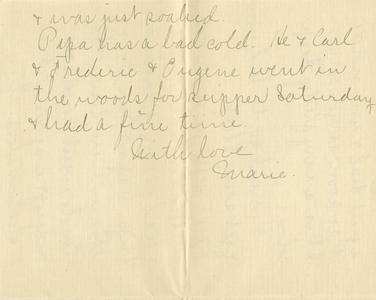 & was just soaked.
Papa has a bad cold. He & Carl
& Frederic & Eugene went in
the woods for supper Saturday
& had a fine time.
With love
Marie.